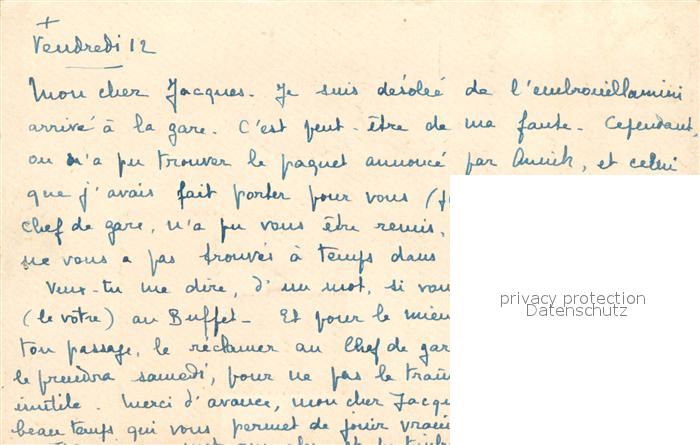 +
Vendredi 12
Mon cher Jacques. Je suis désolée de l'embrouillamini
arrivé à la gare. C'est peut-être de ma faute. Cependant,
on n'a pu trouver le paquet annoncé par Annik, et celui
que j'avais fait porter pour vous
chef de gare, n'a pu vous être remis,
ne vous a pas trouvés à temps dans
Veux-tu me dire, d'un mot, si vou
(le vôtre) au Buffet - Et pour le mieu
ton passage, le réclamer au Chef de gar
le prendra samedi, pour ne pas le traîn
inutile. Merci d'avance, mon cher Jacqu
beau temps qui vous permet de jouir vraim
privacy protection
Datenschutz